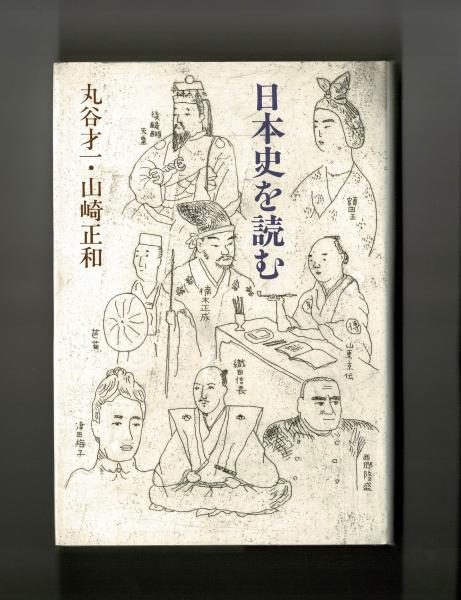 日本史を読む
丸谷才一・山崎正和
後醍醐
天皇
額田王
楠木正成
芭蕉
山東京伝
織田信長
津田梅子
西郷隆盛